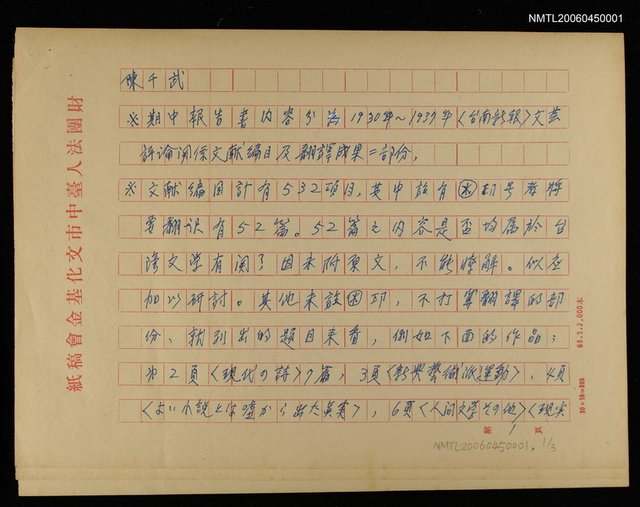 NMTL20060450001
陳千武
※期中報告書內容分為1930年~1937年〈台南新報〉文芸
評論関係文献編目及翻譯成果二部份。
※文献編目計有532項目,其中設有※印号者将
要翻訳有52篇。52篇之內容是否均屬於台
湾文学有関?因未附原文,不能瞭解。似应
加以研討。其他未設※印,不打算翻譯的部
份,就列出的題目来看,例如下面的作品:
2頁〈現代の詩〉7篇,3頁〈新興藝術派運動〉、4頁
〈よい小説とは嘘から出た真実〉,6頁〈人間文学その他〉〈現実
財團法人臺中市文化基金會稿紙
68.3.2,000本
20×10=200
第1頁
NMTL20060450001. 1/3